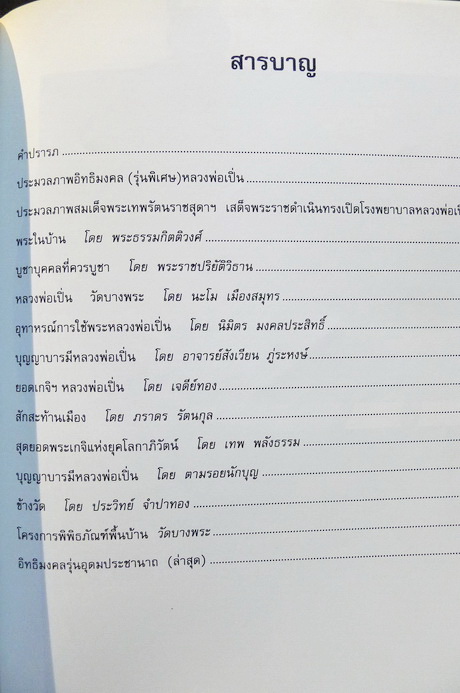 สารบาญ
คำปรารภ
ประมวลภาพอิทธิมงคล (รุ่นพิเศษ)หลวงพ่อเปิ่น
ประมวลภาพสมเด็จพระเทพรัตนราชสุดาฯ เสด็จพระราชดำเนินทรงเปิดโรงพยาบาลหลวงพ่อ
พระในบ้าน โดย พระธรรมกิตติวงศ์
บูชาบุคคลที่ควรบูชา โดย พระราชปริยัติวิธาน
หลวงพ่อเปิ่น วัดบางพระ โดย นะโม เมืองสมุทร
อุทาหรณ์การใช้พระหลวงพ่อเปิ่น โดย นิมิตร มงคลประสิทธิ์
บุญญาบารมีหลวงพ่อเปิ่น โดย อาจารย์สังเวียน ภู่ระหงษ์
ยอดเกจิฯ หลวงพ่อเปิ่น โดย เจดีย์ทอง
สักสะท้านเมือง โดย ภราดร รัตนกุล
สุดยอดพระเกจิแห่งยุคโลกาภิวัตน์ โดย เทพ พลังธรรม
บุญญาบารมีหลวงพ่อเปิ่น โดย ตามรอยนักบุญ
ช้างวัด โดย ประวิทย์ จำปาทอง
โครงการพิพิธภัณฑ์พื้นบ้าน วัดบางพระ
อิทธิมงคลรุ่นอุดมประชานาถ (ล่าสุด)